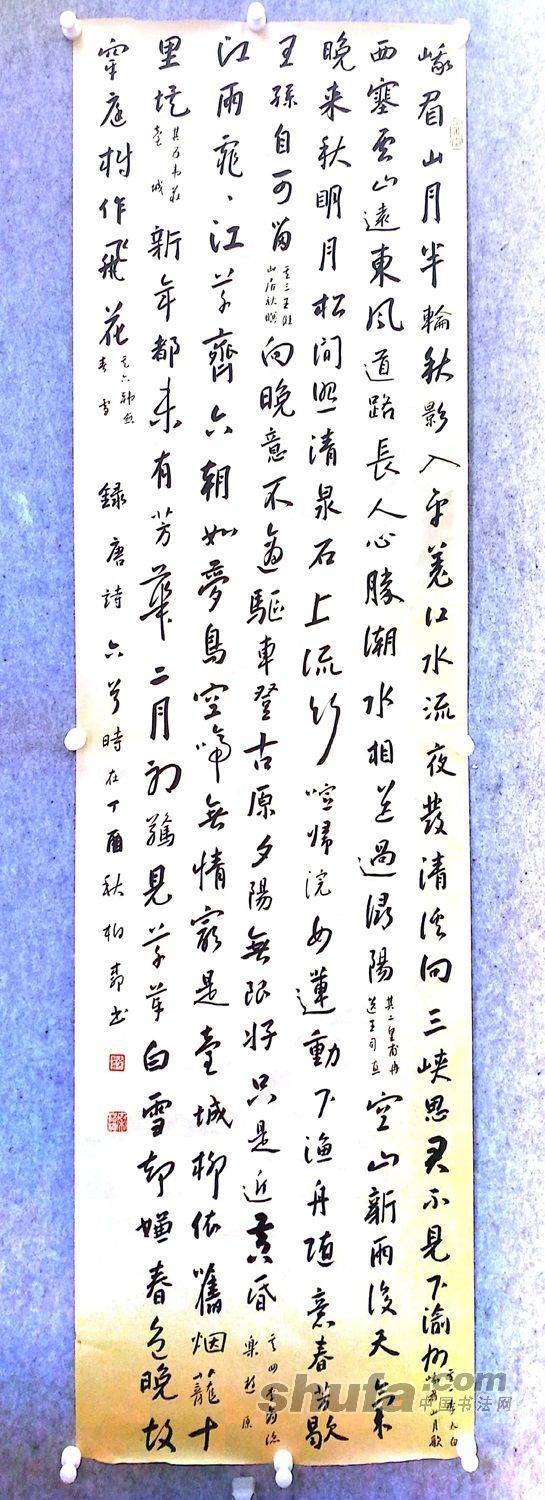 峨眉山月半輪秋影入平羌江水流夜發清溪向三峽思君不見下渝州其一李太白峨眉山月歌
西塞雲山遠東風道路長人心勝潮水相送過潯陽其二皇甫冉送王司直空山新雨後天氣
晚来秋明月松間照清泉石上流竹喧歸浣女蓮動下漁舟随意春芳歇
王孫自可留其三王維山居秋暝向晚意不適驅車登古原夕陽無限好只是近黄昏其四李商隐樂遊原
江雨霏、江草齊六朝如夢鳥空啼無情最是臺城柳依舊烟籠十
里堤其五韦莊臺城新年都未有芳華二月初驚見草芽白雪却嫌春色晚故
穿庭樹作飛花其六韩愈春雪録唐詩六首時在丁酉秋柏书
shufa.com
中国书法网